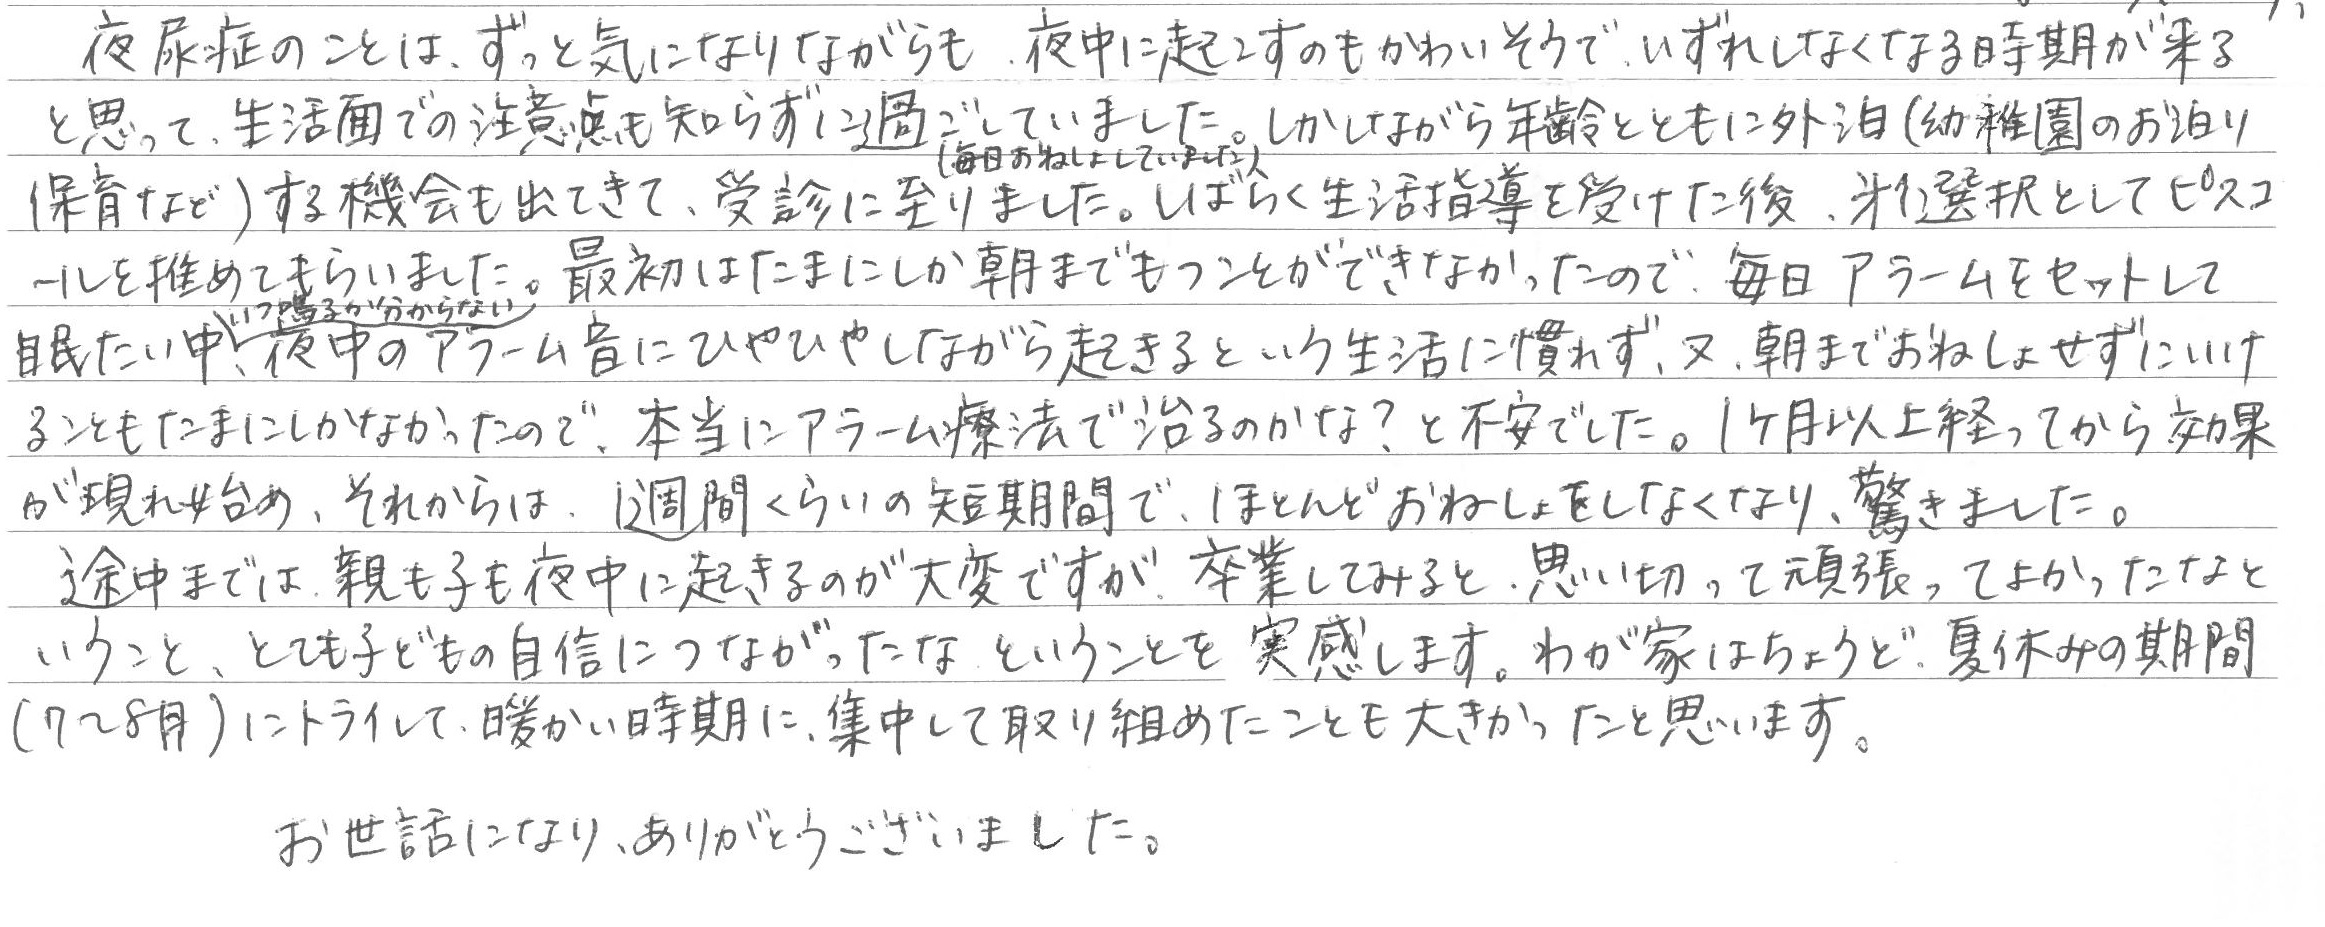 夜尿症のことは、ずっと気になりながらも、夜中に起こすのもかわいそうで、いずれしなくなる時期が来る
と思って、生活面での注意点も知らずに過ごしていました。しかしながら年齢とともに外泊(幼稚園のお泊り
(毎日おねしょしていました)
保育など)する機会も出てきて、受診に至りました。しばらく生活指導を受けた後、第1選択としてピスコ
ールを推めてもらいました。最初はたまにしか朝までもつことができなかったので、毎日アラームをセットして
いつ鳴るか分からない
眠たい中、夜中のアラーム音にひやひやしながら起きるという生活に慣れず、又、朝までおねしょせずにいけ
ることもたまにしかなかったので、本当にアラーム療法で治るのかな?と不安でした。1ヶ月以上経ってから効果
が現れ始め、それからは、1週間くらいの短期間で、ほとんどおねしょをしなくなり、驚きました。
途中までは、親も子も夜中に起きるのが大変ですが、卒業してみると、思い切って頑張ってよかったなと
いうこと、とても子どもの自信につながったな、ということを実感します。わが家はちょうど、夏休みの期間
(7〜8月)にトライして、暖かい時期に、集中して取り組めたことも大きかったと思います。
お世話になり、ありがとうございました。